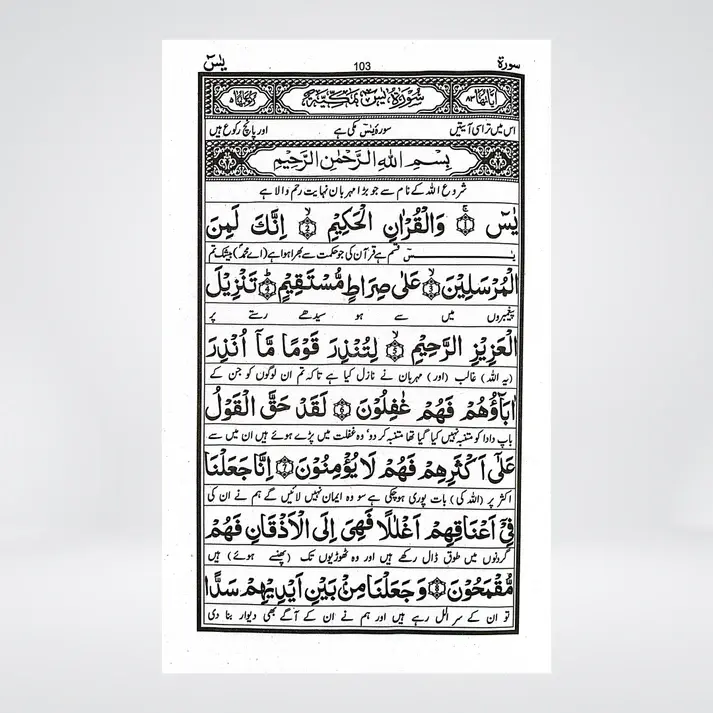 یٰسٓ 103 سورۃ
اٰیَاتُہَا ۸۳ سُوْرَۃُ یٰسٓ مَکِّیَّۃٌ رُکُوْعَاتُہَا ۵
اس میں تراسی آیتیں سورۂ یٰسٓ مکی ہے اور پانچ رکوع ہیں
بِسْمِ اللّٰهِ الرَّحْمٰنِ الرَّحِیْمِ
شروع اللہ کے نام سے جو بڑا مہربان نہایت رحم والا ہے
یٰسٓ ۚ ﴿1﴾ وَالْقُرْاٰنِ الْحَكِیْمِ ۙ ﴿2﴾ اِنَّكَ لَمِنَ
یٰسٓ قسم ہے قرآن کی جو حکمت سے بھرا ہوا ہے (اے محمدؐ) بیشک تم
الْمُرْسَلِیْنَ ۙ ﴿3﴾ عَلٰی صِرَاطٍ مُّسْتَقِیْمٍ ؕ ﴿4﴾ تَنْزِیْلَ
پیغمبروں میں سے ہو سیدھے رستے پر
الْعَزِیْزِ الرَّحِیْمِ ۙ ﴿5﴾ لِتُنْذِرَ قَوْمًا مَّاۤ اُنْذِرَ
(یہ اللہ) غالب (اور) مہربان نے نازل کیا ہے تاکہ تم ان لوگوں کو جن کے
اٰبَآؤُهُمْ فَهُمْ غٰفِلُوْنَ ﴿6﴾ لَقَدْ حَقَّ الْقَوْلُ
باپ دادا کو متنبہ نہیں کیا گیا تھا متنبہ کر دو، وہ غفلت میں پڑے ہوئے ہیں ان میں سے
عَلٰۤی اَكْثَرِهِمْ فَهُمْ لَا یُؤْمِنُوْنَ ﴿7﴾ اِنَّا جَعَلْنَا
اکثر پر (اللہ کی) بات پوری ہوچکی ہے سو وہ ایمان نہیں لائیں گے ہم نے ان کی
فِیْۤ اَعْنَاقِهِمْ اَغْلٰلًا فَهِیَ اِلَی الْاَذْقَانِ فَهُمْ
گردنوں میں طوق ڈال رکھے ہیں اور وہ ٹھوڑیوں تک (پھنسے ہوئے) ہیں
مُّقْمَحُوْنَ ﴿8﴾ وَجَعَلْنَا مِنْۢ بَیْنِ اَیْدِیْهِمْ سَدًّا
تو ان کے سر الل رہے ہیں اور ہم نے ان کے آگے بھی دیوار بنا دی